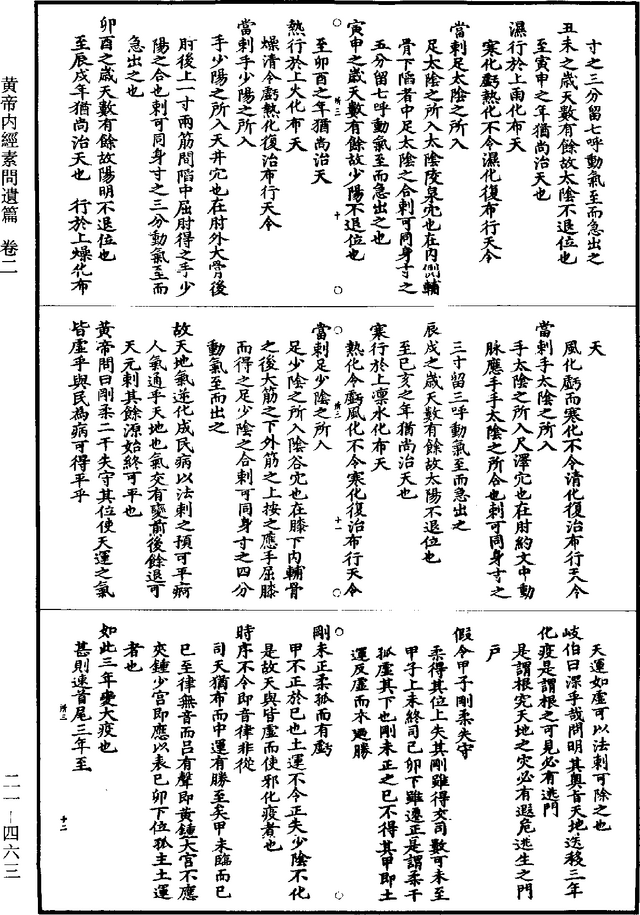 寸之三分留七呼動氣至而急出之
丑未之歲天數有餘故太陰不退位也
至寅申之年猶尚治天也
濕行於上雨化布天
寒化虧熱化不令濕化復布行天令
當刺足太陰之所入
足太陰之所入太陰陵泉穴也在内側輔
骨下陷者中足太陰之合刺可同身寸之
五分留七呼動氣至而急出之也
寅申之歲天數有餘故少陽不退位也
至卯酉之年猶尚治天
熱行於上火化布天
燥清令虧熱化復治布行天令
當刺手少陽之所入
手少陽之所入天井穴也在肘外大骨後
肘後上一寸兩筋間陷中屈肘得之手少
陽之合也刺可同身寸之三分動氣至而
急出之也
卯酉之歲天數有餘故陽明不退位也
至辰戌年猶尚治天也 行於上燥化布
天
風化虧而寒化不令清化復治布行天令
當刺手太陰之所入
手太陰之所入尺澤穴也在肘約文中動
脉應手手太陰之所合也刺可同身寸之
三寸留三呼動氣至而急出之
辰戌之歲天數有餘故太陽不退位也
至巳亥之年猶尚治天也
寒行於上凛水化布天
熱化令虧風化不令寒化復治布行天令
當刺足少陰之所入
足少陰之所入陰谷穴也在膝下内輔骨
之後大筋之下外筋之上按之應手屈膝
而得之足少陰之合刺可同身寸之四分
動氣至而出之
故天地氣逆化成民病以法刺之預可平痾
人氣通乎天地也氣交有變前後餘退可
天元刺其餘源始終可平也
黄帝問曰剛柔二干失守其位使天運之氣
皆虚乎與民為病可得平乎
天運如虚可以法刺可除之也
岐伯曰深乎哉問明其奥旨天地迭移三年
化疫是謂根之可見必有逃門
是謂根究天地之灾必有遐危逃生之門
户
假令甲子剛柔失守
柔得其位上失其剛雖得交司數可未至
甲子上未終司己卯下雖遷正是謂柔干
孤虚其下也剛未正之己不得其甲即土
運反虚而木過勝
剛未正柔孤而有虧
甲不正於己也土運不令正失少陰不化
是故天與皆虚而使邪化疫者也
時序不令即音律非從
司天猶布而中運有勝至矣甲未臨而已
已至律無音而吕有聲即黄鍾大宫不應
夾鍾少宫即應以表己卯下位孤主土運
者也
如此三年變大疫也
甚則速首尾三年至
黄帝内經素問遺篇 卷二
二一－四六三